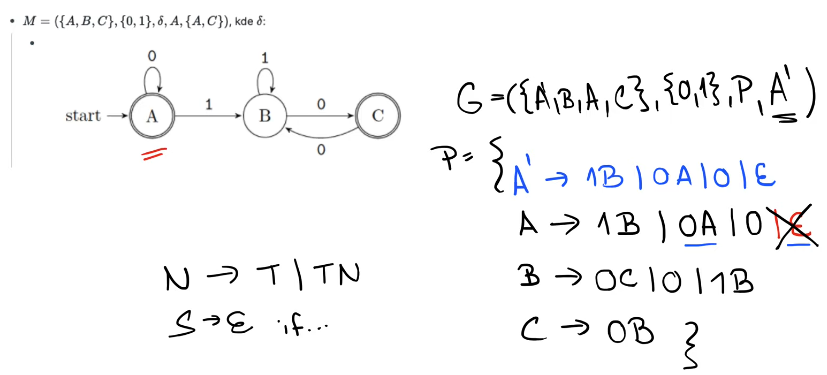 • M = ({A, B, C}, {0, 1}, δ, A, {A, C}), kde δ:
•
0
1
start
A
1
B
0
C
0
G = ({A, B, A, C}, {0, 1}, P, A')
P = {
A' → 1B | 0A | 0 | ε
A → 1B | 0A | 0 | ε
B → 0C | 0 | 1B
C → 0B }
N → T | TN
S → ε if...